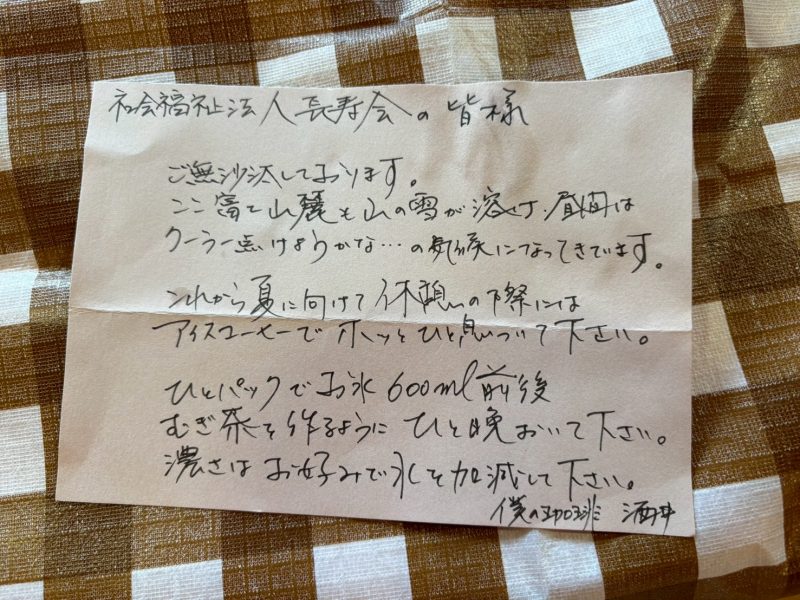 社会福祉法人長寿会の皆様
ご無沙汰しております。
ここ富士山麓も山の雪が溶け、昼間は
クーラー点けようかな…の気候になってきています。
これから夏に向けて休憩の際には
アイスコーヒーでホッとひと息ついて下さい。
ひとパックでお水600ml前後
むぎ茶を作るようにひと晩おいて下さい。
濃さはお好みで水を加減して下さい。
僕の珈琲 酒井